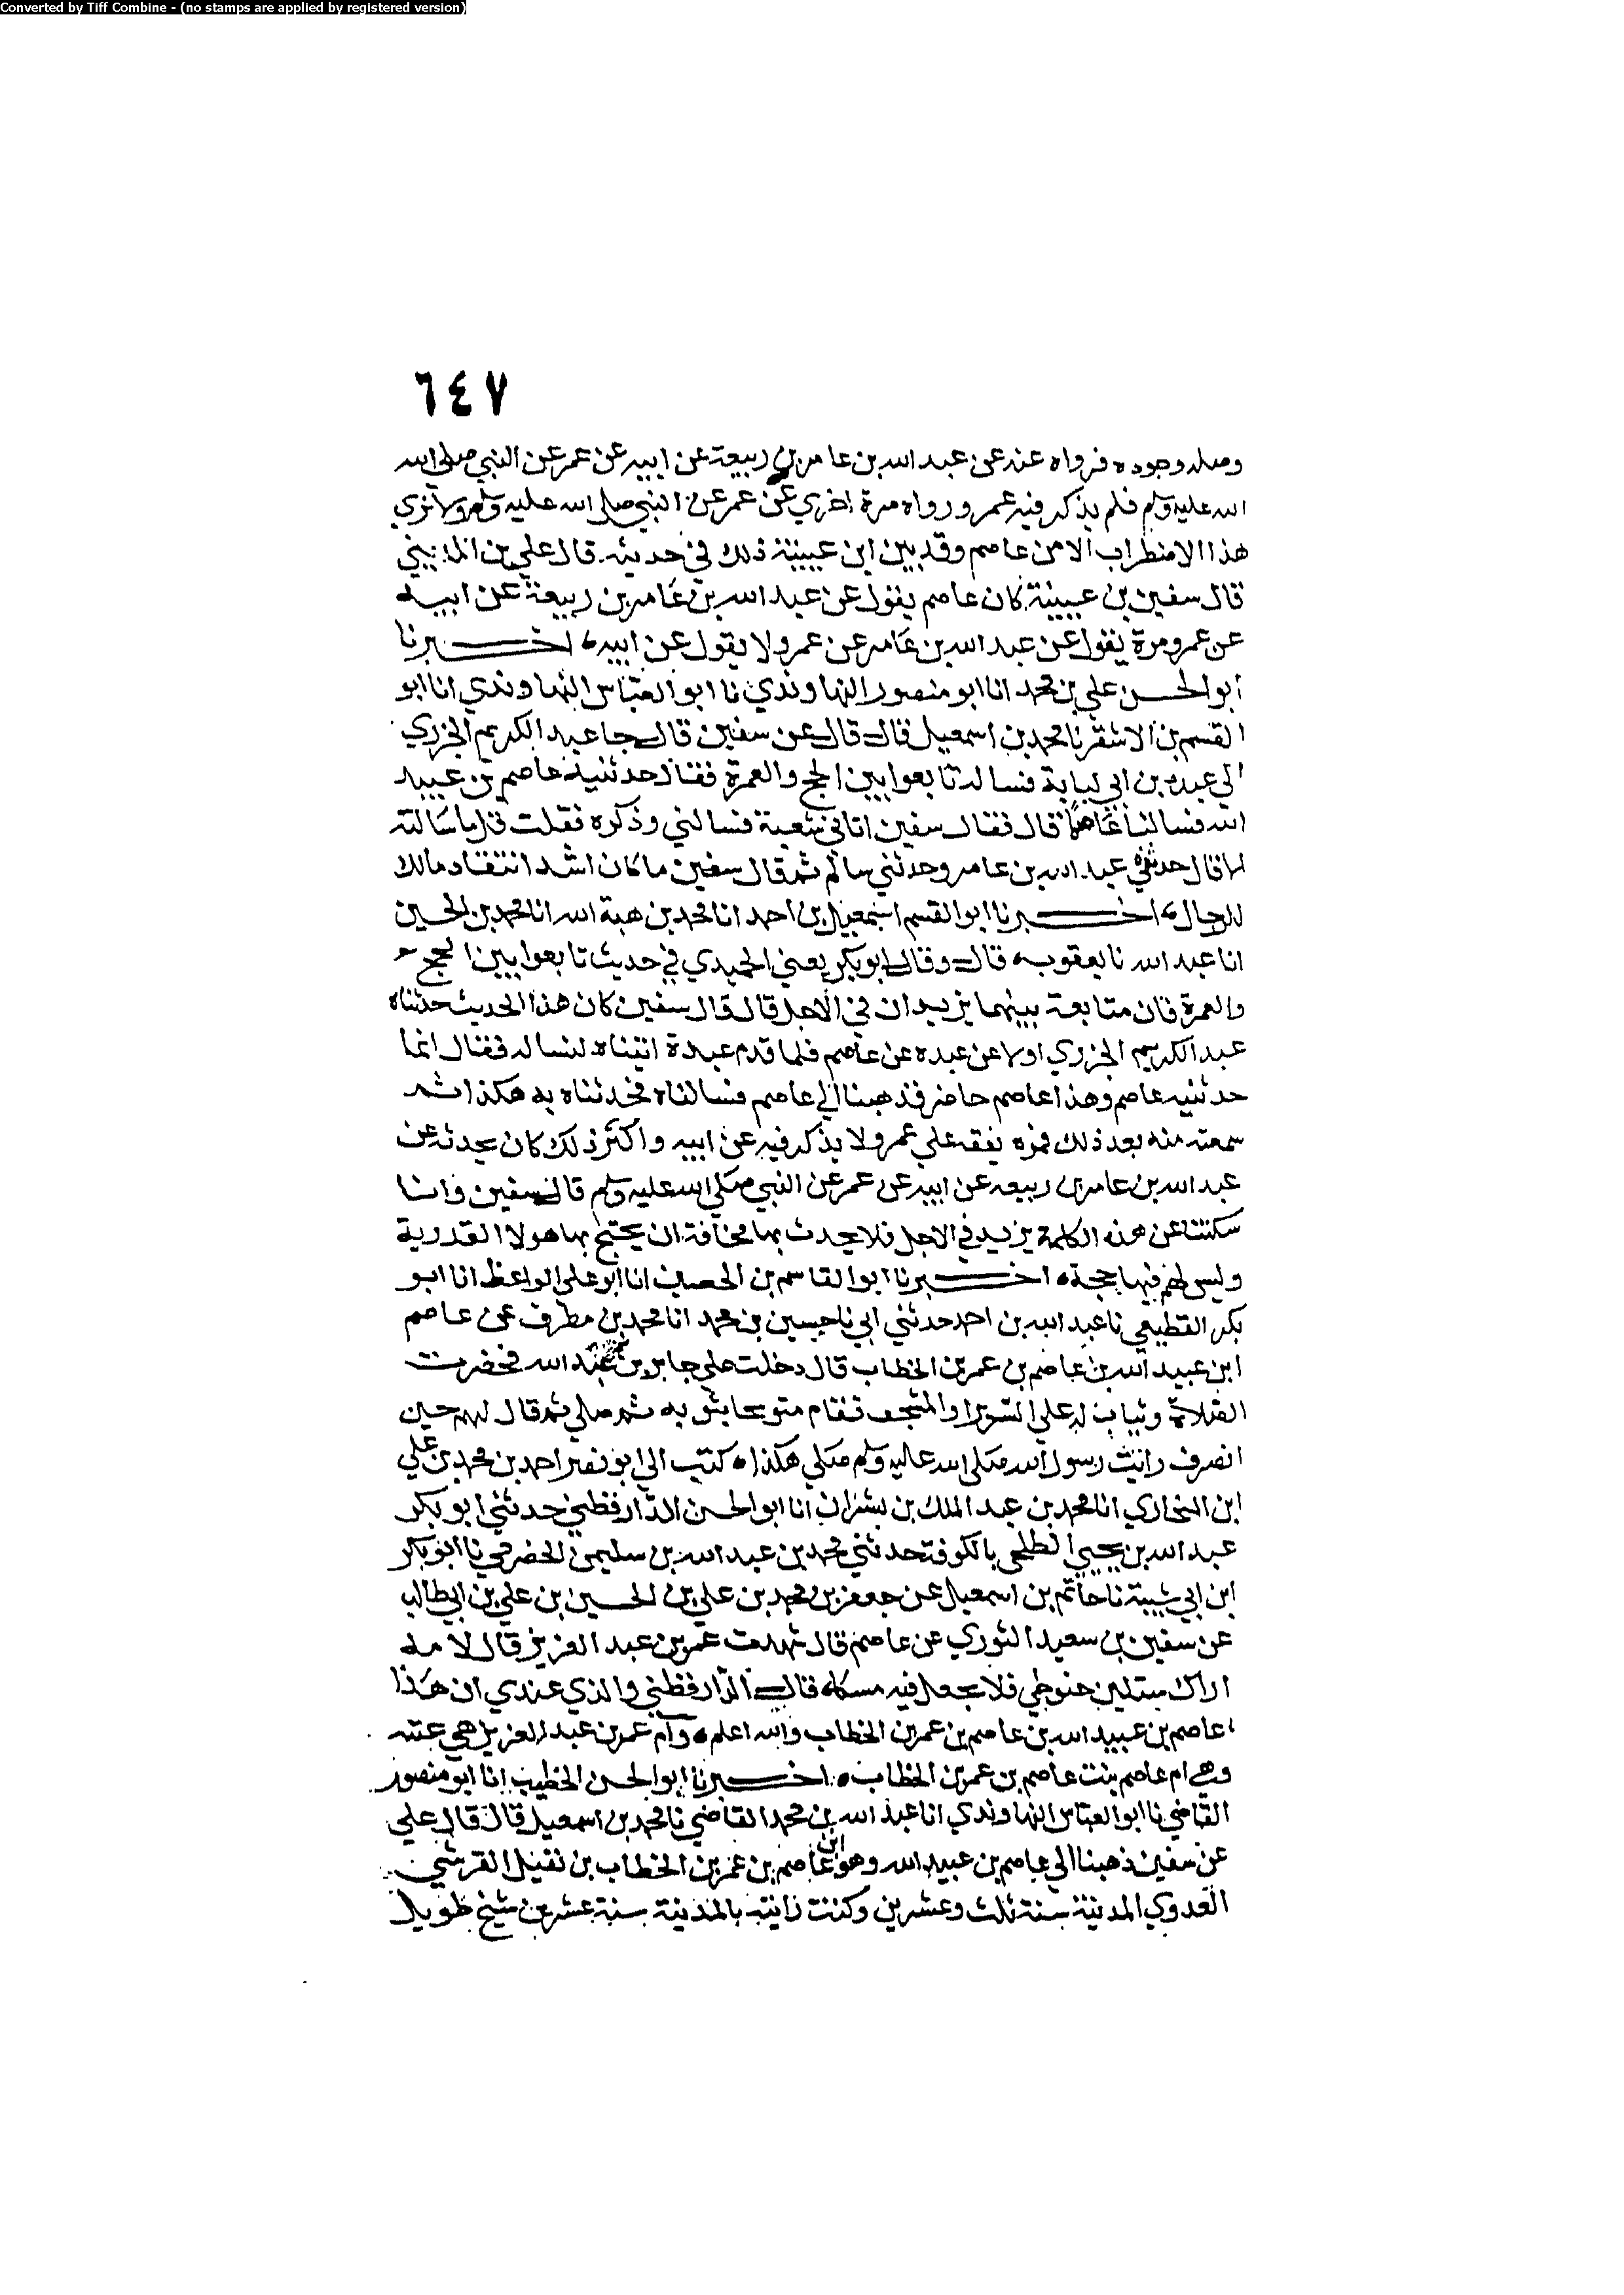 Converted by Tiff Combine - (no stamps are applied by registered version)
٦٤٧
وصله وجوده فرواه عنه عن عبد الله بن عامر بن ربيعة عن ابيه عن عمر عن النبي صلى الله
الله عليه وسلم فلم يذكر فيه عمر ورواه مرة اخري عن عمر عن النبي صلى الله عليه وسلم ولا نري
هذا الاضطراب الا من عاصم وقد بين ابن عيينة ذلك في حديثه قال علي بن المديني
قال سفين بن عيينة كان عاصم يقول عن عبد الله بن عامر بن ربيعة عن ابيه
عن عمر ومرة يقول عن عبد الله بن عامر عن عمر ولا يقول عن ابيه ه اخبرنا
ابو الحسن علي بن محمد انا ابو منصور النهاوندي نا ابو العباس النهاوندي انا ابو
القسم بن الاشقر نا محمد بن اسمعيل قال قال عن سفين قال جا عبد الكريم الجزري
الي عبده بن ابي لبابة فساله تابعوا بين الحج والعمرة فقال حدثنيه عاصم بن عبيد
الله فسالنا عاصما قال فقال سفين اتاني شعبة فسالني وذكره فقلت فما سالته
لما قال حدثني عبد الله بن عامر وحدثني سالم ثم قال سفين ما كان اشد انتقاد مالك
للرجال ه اخبرنا ابو القسم اسمعيل بن احمد انا محمد بن هبة الله انا محمد بن الحسين
انا عبد الله نا يعقوب ه قال وقال ابو بكر يعني الحميدي في حديث تابعوا بين الحج
والعمرة فان متابعة بينهما يزيدان في الاجل قال قال سفين كان هذا الحديث حدثناه
عبد الكريم الجزري اولا عن عبده عن عاصم فلما قدم عبدة اتيناه لنساله فقال انما
حدثنيه عاصم وهذا عاصم حاضر فذهبنا الي عاصم فسالناه فحدثناه به هكذا ثم
سمعته منه بعد ذلك فمره يقفه علي عمر ولا يذكر فيه عن ابيه واكثر ذلك كان يحدثه عن
عبد الله بن عامر بن ربيعه عن ابيه عن عمر عن النبي صلى الله عليه وسلم قال سفين وانا
سكتنا عن هذه الكلمة يزيد في الاجل فلا يحدث بها مخافة ان يحتج بها هولا القدرية
وليس لهم فيها حجة ه اخبرنا ابو القاسم بن الحصين انا ابو علي الواعظ انا ابو
بكر القطيعي نا عبد الله بن احمد حدثني ابي نا حسين بن محمد انا محمد بن مطرف عن عاصم
ابن عبيد الله بن عاصم بن عمر بن الخطاب قال دخلت علي جابر بن عبد الله فحضرت
الصلاة وثياب له علي السرير او المشجب فقام متوشحا بثوبه ثم صلي ثم قال لهم حين
انصرف رايت رسول الله صلى الله عليه وسلم صلي هكذا ه كتب الي ابو نصر احمد بن محمد بن علي
ابن البخاري انا محمد بن عبد الملك بن بشران انا ابو الحسن الدارقطني حدثني ابو بكر
عبد الله بن يحيي الطلحي بالكوفة حدثني محمد بن عبد الله بن سليمن الحضرمي نا ابو بكر
ابن ابي شيبة نا حاتم بن اسمعيل عن جعفر بن محمد بن علي بن الحسين بن علي بن ابي طالب
عن سفين بن سعيد الثوري عن عاصم قال شهدت عمر بن عبد العزيز قال لامه
اراك ستلين حنوطي فلا تجعل فيه مسكا ه قال الدارقطني والذي عندي ان هذا
عاصم بن عبيد الله بن عاصم بن عمر بن الخطاب والله اعلم ه وام عمر بن عبد العزيز هي عمته
وهي ام عاصم بنت عاصم بن عمر بن الخطاب ه اخبرنا ابو الحسن الخطيب انا ابو منصور
القاضي نا ابو العباس النهاوندي انا عبد الله بن محمد القاضي نا محمد بن اسمعيل قال قال علي
عن سفين ذهبنا الي عاصم بن عبيد الله وهو ابن عاصم بن عمر بن الخطاب بن نفيل القرشي
العدوي المدينة سنة ثلث وعشرين وكنت رايته بالمدينة سنة عشرين شيخ طويل